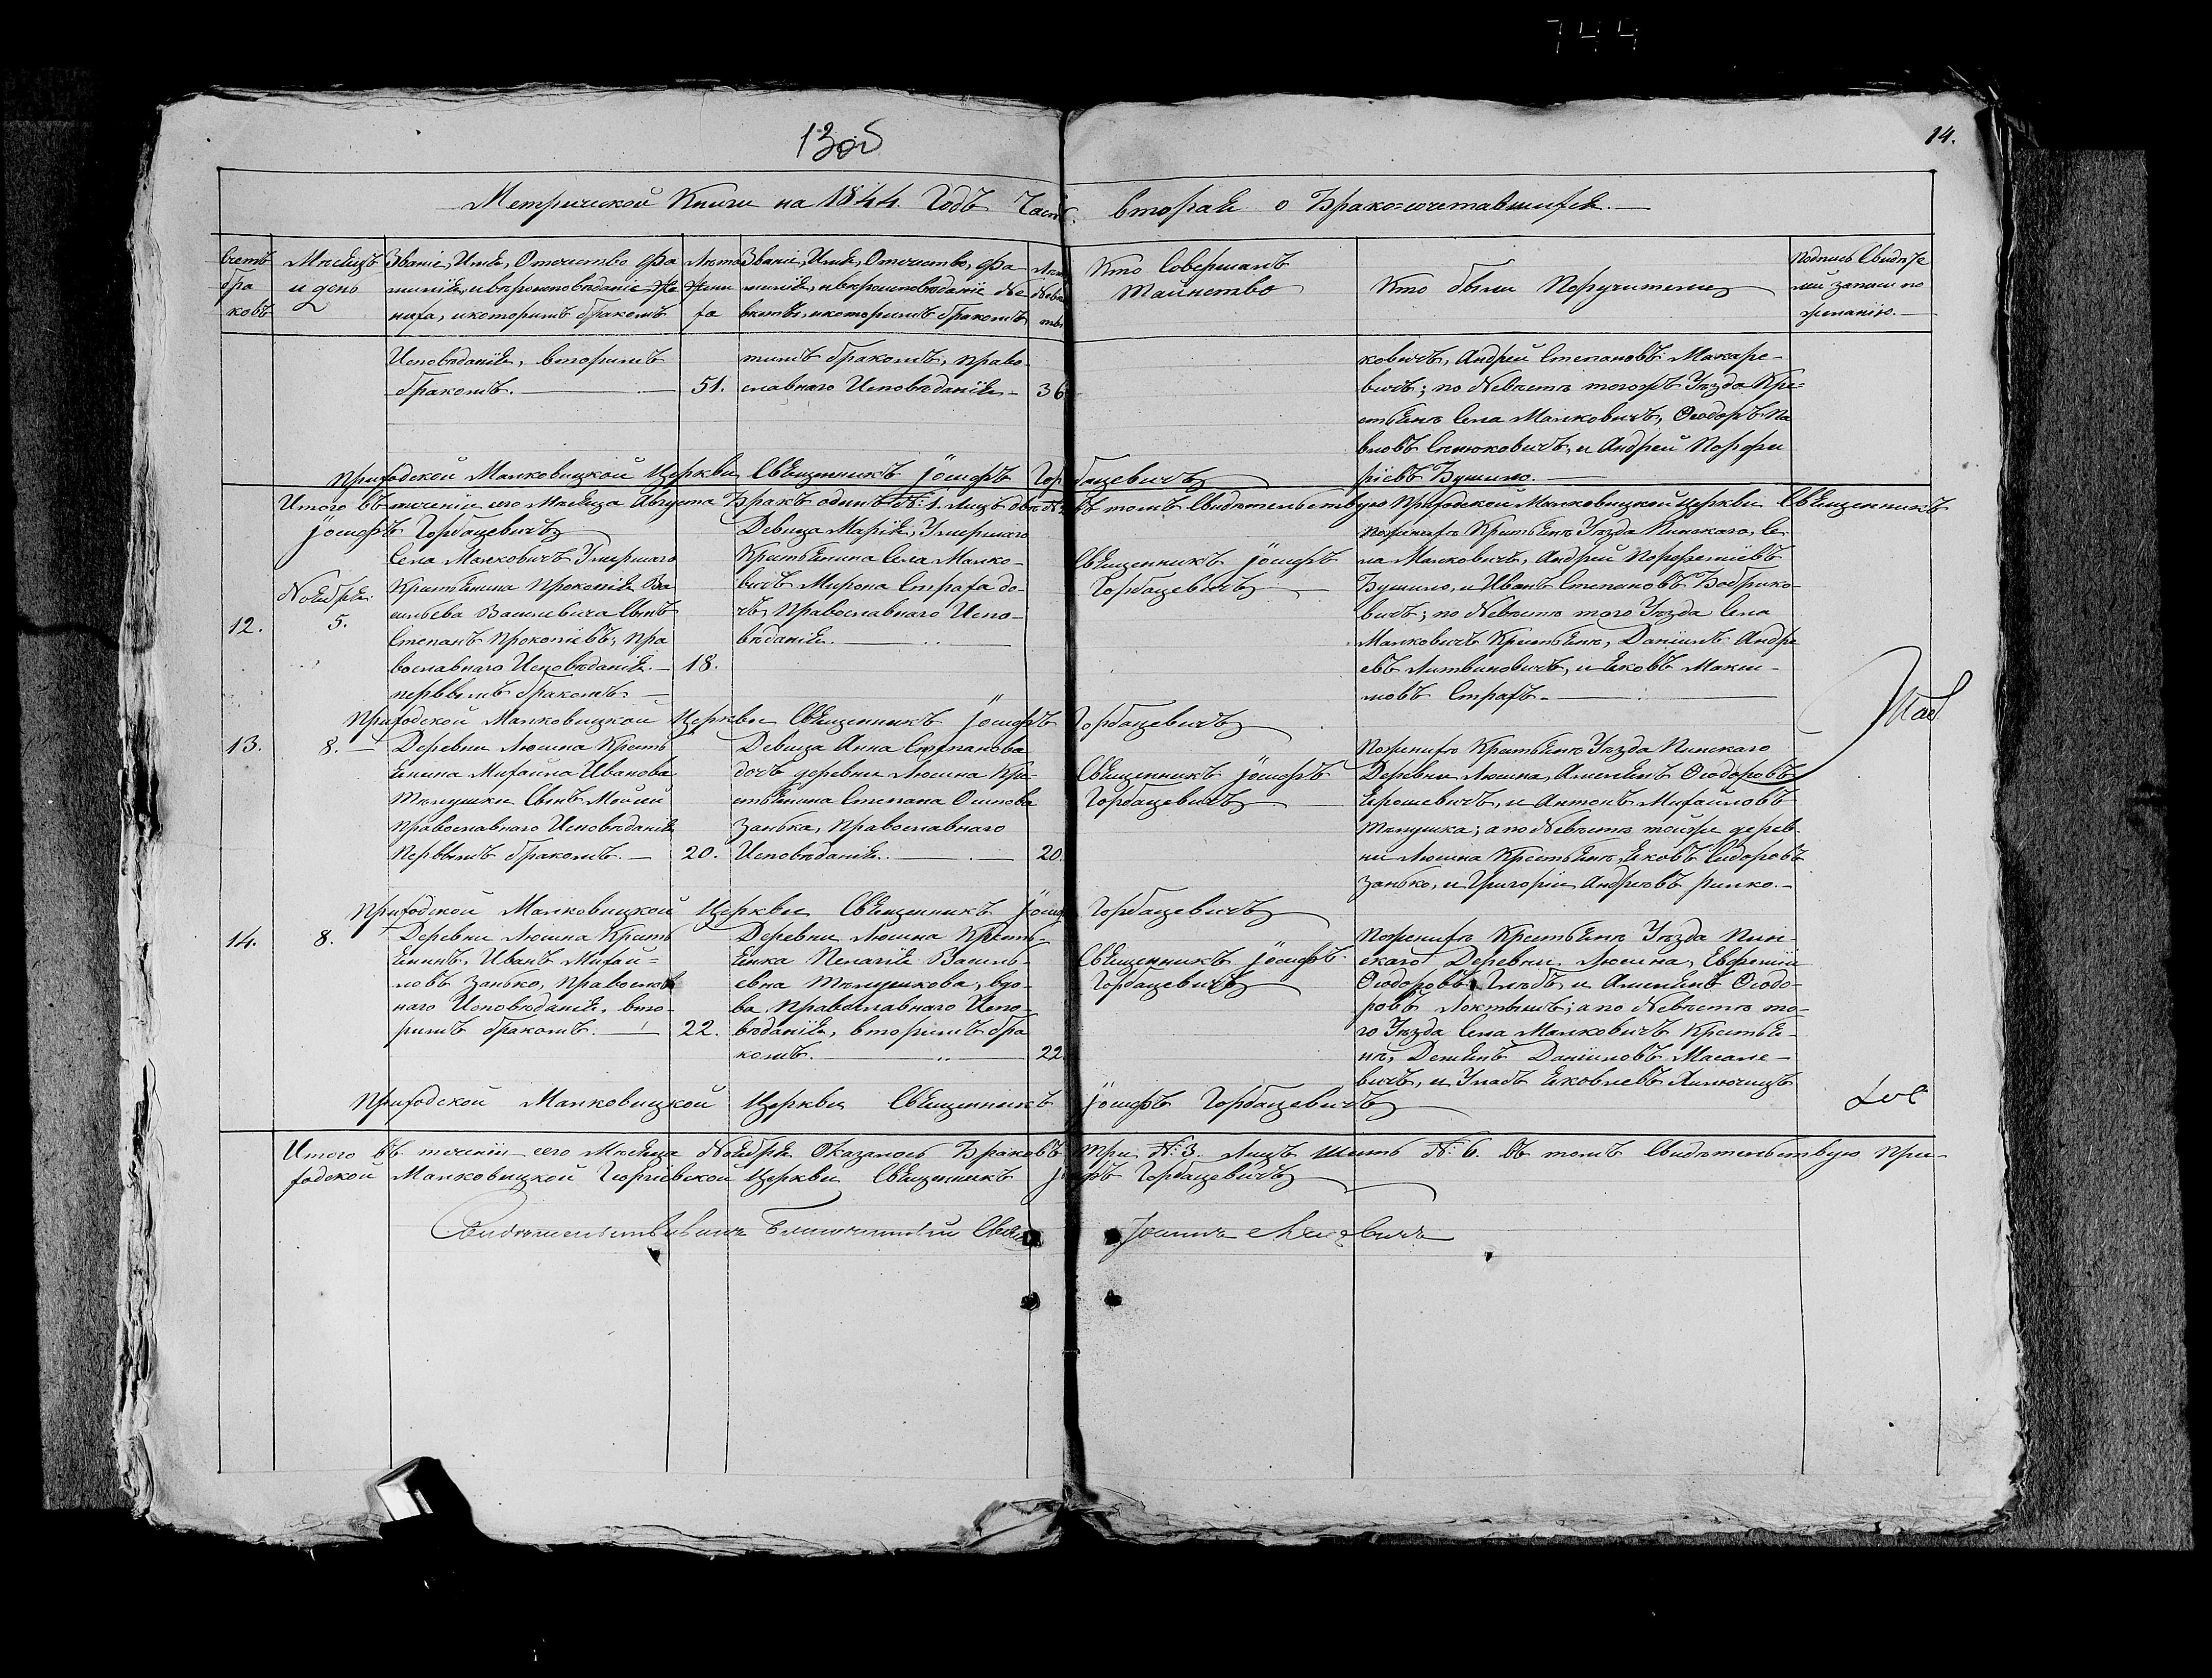 744
13об
14.
Метрической Книги на 1844. Годъ Часть вторая о Брако=сочетавшихся.
Счетъ браковъ
Месяцъ и день
Званіе, Имя, Отечество Фа
милія, и вероисповеданіе Же
ниха, и которымъ бракомъ
Лета Жени
ха
Званіе, Имя, Отечество, Фа
милія, и вероисповеданіе Не
весты, и которымъ бракомъ
Лета Неве
сты
Кто Совершалъ
Таинство
Кто были Поручители
Подпись Свидете
лей записи по
желанію.
Исповеданія, вторымъ
бракомъ. 51.
тимъ бракомъ, право
славнаго Исповеданія 36
ковичъ, Андрей Степановъ Макаре-
вичъ; по Невесте тогожъ Уезда Кре=
стьяне Села Малковичъ, Ѳеодоръ Па
вловъ Сенюковичъ, и Андрей Порфи
ріевъ Бушило.
Приходской Малковицкой Церкви Священникъ Іосифъ Горбацевичъ
Итого въ теченіи сего Месяца Августа Бракъ одинъ №: 1. Лицъ две № 2. въ томъ Свидетельствую Приходской Малковицкой Церкви Священникъ
Іосифъ Горбацевичъ
12.
Ноября
5.
Села Малковичъ Умершаго
Крестьянина Прокопія Ва
сильева Василевича Сынъ
Степанъ Прокопіевъ, Пра
вославнаго Исповеданія. 18.
первымъ бракомъ.
Девица Марія, Умершаго
Крестьянина Села Малко-
вичъ Мирона Страха до-
чь Православнаго Испо-
веданія.
Священникъ Іосифъ
Горбацевичъ
По женихе Крестьяне Уезда Пинскаго, Се
ла Малковичъ, Андрей Порфиріевъ
Бушило, и Иванъ Степановъ Бобрико-
вичъ; по Невесте того Уезда Села
Малковичъ Крестьяне, Даніилъ Андре
евъ Литвиновичъ, и Яковъ Макси-
мовъ Страхъ.
Приходской Малковицкой Церкви Священникъ Іосифъ Горбацевичъ
13.
8.
Деревни Люсина Кресть
янина Михаила Иванова
Телушки Сынъ Моисей
Православнаго Исповеданія
Первымъ бракомъ. 20.
Девица Анна Степанова
дочь деревни Люсина Кре-
стьянина Степана Осипова
Занька, Православнаго
Исповеданія. 20.
Священникъ Іосифъ
Горбацевичъ
По женихе Крестьяне Уезда Пинскаго
Деревни Люсина, Амелянъ Ѳеодоровъ
Ярошевичъ, и Антонъ Михайловъ
Телушка; а по Невесте тойже дерев-
ни Люсина Крестьяне, Яковъ Сидоровъ
Занько, и Григорій Андреевъ Рипко.
Приходской Малковицкой Церкви Священникъ Іосифъ Горбацевичъ
14.
8.
Деревни Люсина Кресть
янинъ, Иванъ Михай=
ловъ Занько, Православ
наго Исповеданія, вто-
рымъ бракомъ. 22.
Деревни Люсина Кресть-
янка Пелагія Василь-
евна Телушкова, вдо-
ва Православнаго Испо-
веданія, вторымъ бра
комъ. 22.
Священникъ Іосифъ
Горбацевичъ
По женихе Крестьяне Уезда Пин-
скаго Деревни Люсина, Евфимій
Ѳеодоровъ Глебъ, и Амелянъ Ѳеодо-
ровъ Локтышъ; а по Невесте то-
го Уезда Села Малковичъ Крестья-
не, Демянъ Даніиловъ Масале-
вичъ, и Улась Яковлевъ
Приходской Малковицкой Церкви Священникъ Іосифъ Горбацевичъ
Итого въ теченіи сего Месяца Ноября Оказалось Браковъ Три №: 3. Лицъ Шесть №: 6. Въ томъ Свидетельствую При-
ходской Малковицкой Георгіевской Церкви Священникъ Іосифъ Горбацевичъ
Свидетельствовалъ Благочинный Священникъ Іоаннъ